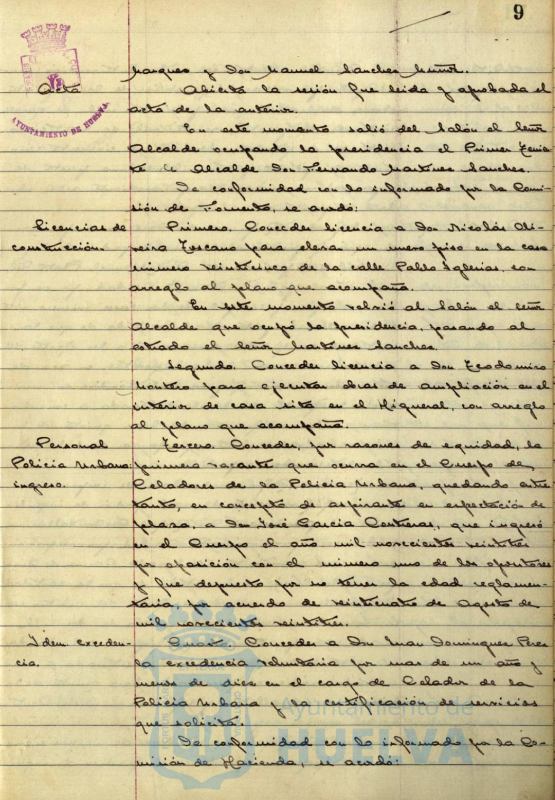 9
AYUNTAMIENTO DE HUELVA
Marquez y Don Manuel Sanchez Muñoz.
Acta
Abierta la sesión fue leida y aprobada el
acta de la anterior.
En este momento salió del Salón el Señor
Alcalde ocupando la presidencia el Primer Tenien
te de Alcalde Don Fernando Martinez Sanchez.
De conformidad con lo informado por la Comi-
sión de Fomento, se acordó:
Licencias de
construcción.
Primero. Conceder licencia a Don Nicolás Oli-
veira Toscano para elevar un nuevo piso en la casa
número veinticinco de la calle Pablo Iglesias, con
arreglo al plano que acompaña.
En este momento volvió al Salón el Señor
Alcalde que ocupó la presidencia, pasando al
estrado el Señor Martinez Sanchez.
Segundo. Conceder licencia a Don Teodomiro
Montero para ejecutar obras de ampliación en el
interior de casa sita en el Higueral, con arreglo
al plano que acompaña.
Personal
Policia Urbana
ingreso.
Tercero. Conceder, por razones de equidad, la
primera vacante que ocurra en el Cuerpo de
Celadores de la Policia Urbana, quedando entre
tanto, en concepto de aspirante en expectación de
plaza, a Don José Garcia Contreras, que ingresó
en el Cuerpo el año mil novecientos veintitrés
por oposición con el número uno de los opositores
y fue depuesto por no tener la edad reglamen-
taria, por acuerdo de veinticuatro de Agosto de
mil novecientos veintitrés.
Idem exceden-
cia.
Cuarto. Conceder a Don Juan Dominguez Perez
la excedencia voluntaria por mas de un año y
menos de diez en el cargo de Celador de la
Policia Urbana y la certificación de servicios
que solicita.
De conformidad con lo informado por la Co-
misión de Hacienda, se acordó:
Ayuntamiento de
HUELVA